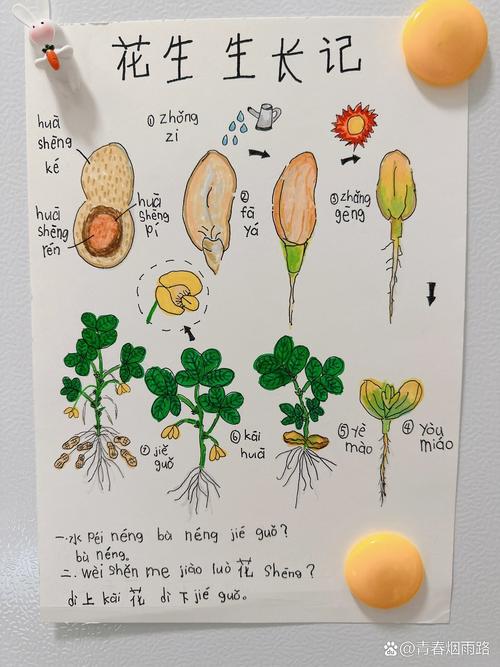 花生生长记
huā
shēng
ké
① zhǒng
zi
huā
shēng
rén
huā
shēng
pí
② fā
yá
③ zhǎng
gēng
④ Yòu
miáo
⑤ yè
mào
⑥ kāi
huā
⑦ jiē
guǒ
一.水 péi néng bù néng jié guǒ?
bù néng。
二. wèi shěn me jiào luò 花 shēng?
dì 上 kāi 花 dì 下 jié guǒ。
Bai百科 @青春烟雨路